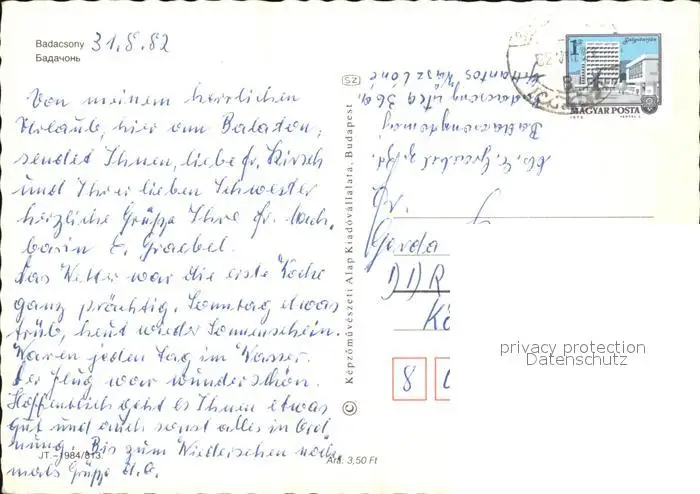 Badacsony 31.8.82
Бадачонь
Von meinem herrlichen
Urlaub, hier am Balaton,
sendet Ihnen, liebe Fr. Kirsch
und Ihrer lieben Schwester
herzliche Grüße Ihre Fr. Nach-
barin E. Graebel.
Das Wetter war die erste Woche
ganz prächtig. Sonntag etwas
trüb, heut wieder Sonnenschein.
Waren jeden Tag im Wasser.
Der Flug war wunderschön.
Hoffentlich geht es Ihnen etwas
gut und auch sonst alles in Ord
nung. Bis zum Wiedersehen noch-
mals Grüße d. O.
JT.-1984/813.
Ára: 3,50 Ft
© Képzőművészeti Alap Kiadóvállalata, Budapest
SZ
1
Salgótarján
MAGYAR POSTA
1973
Badacsonytomaj
utca
Fr.
Gerda
DDR
Kö
8
privacy protection
Datenschutz